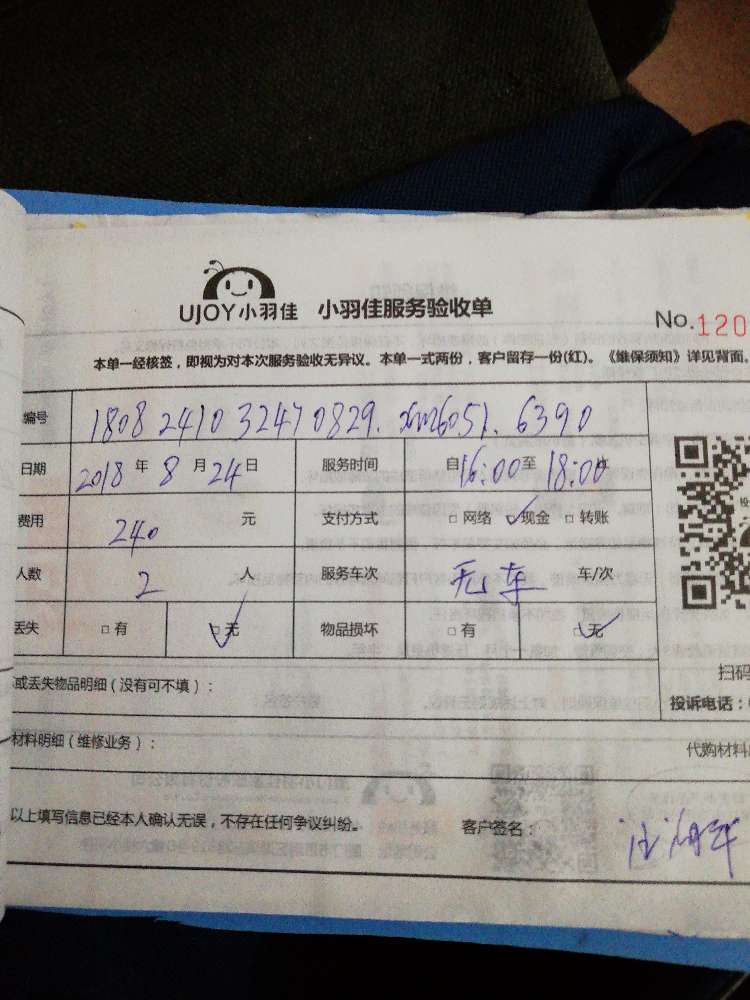 UJOY小羽佳 小羽佳服务验收单
No.120
本单一经核签，即视为对本次服务验收无异议。本单一式两份，客户留存一份(红)。《维保须知》详见背面。
编号 1808241032470829. xm6051. 6390
日期 2018年8月24日 服务时间 自16:00至18:00
费用 240 元 支付方式 □ 网络 ✓现金 □ 转账
人数 2 人 服务车次 无车 车/次
丢失 □ 有 □✓无 物品损坏 □ 有 □✓无
扫码
或丢失物品明细（没有可不填）：
投诉电话：
材料明细（维修业务）：
代购材料
以上填写信息已经本人确认无误，不存在任何争议纠纷。 客户签名：